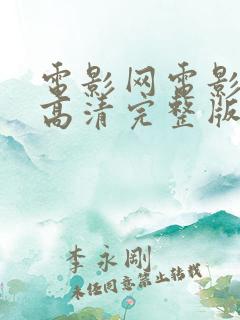 电影网电影
高清完整版
李永刚
未经同意禁止转载